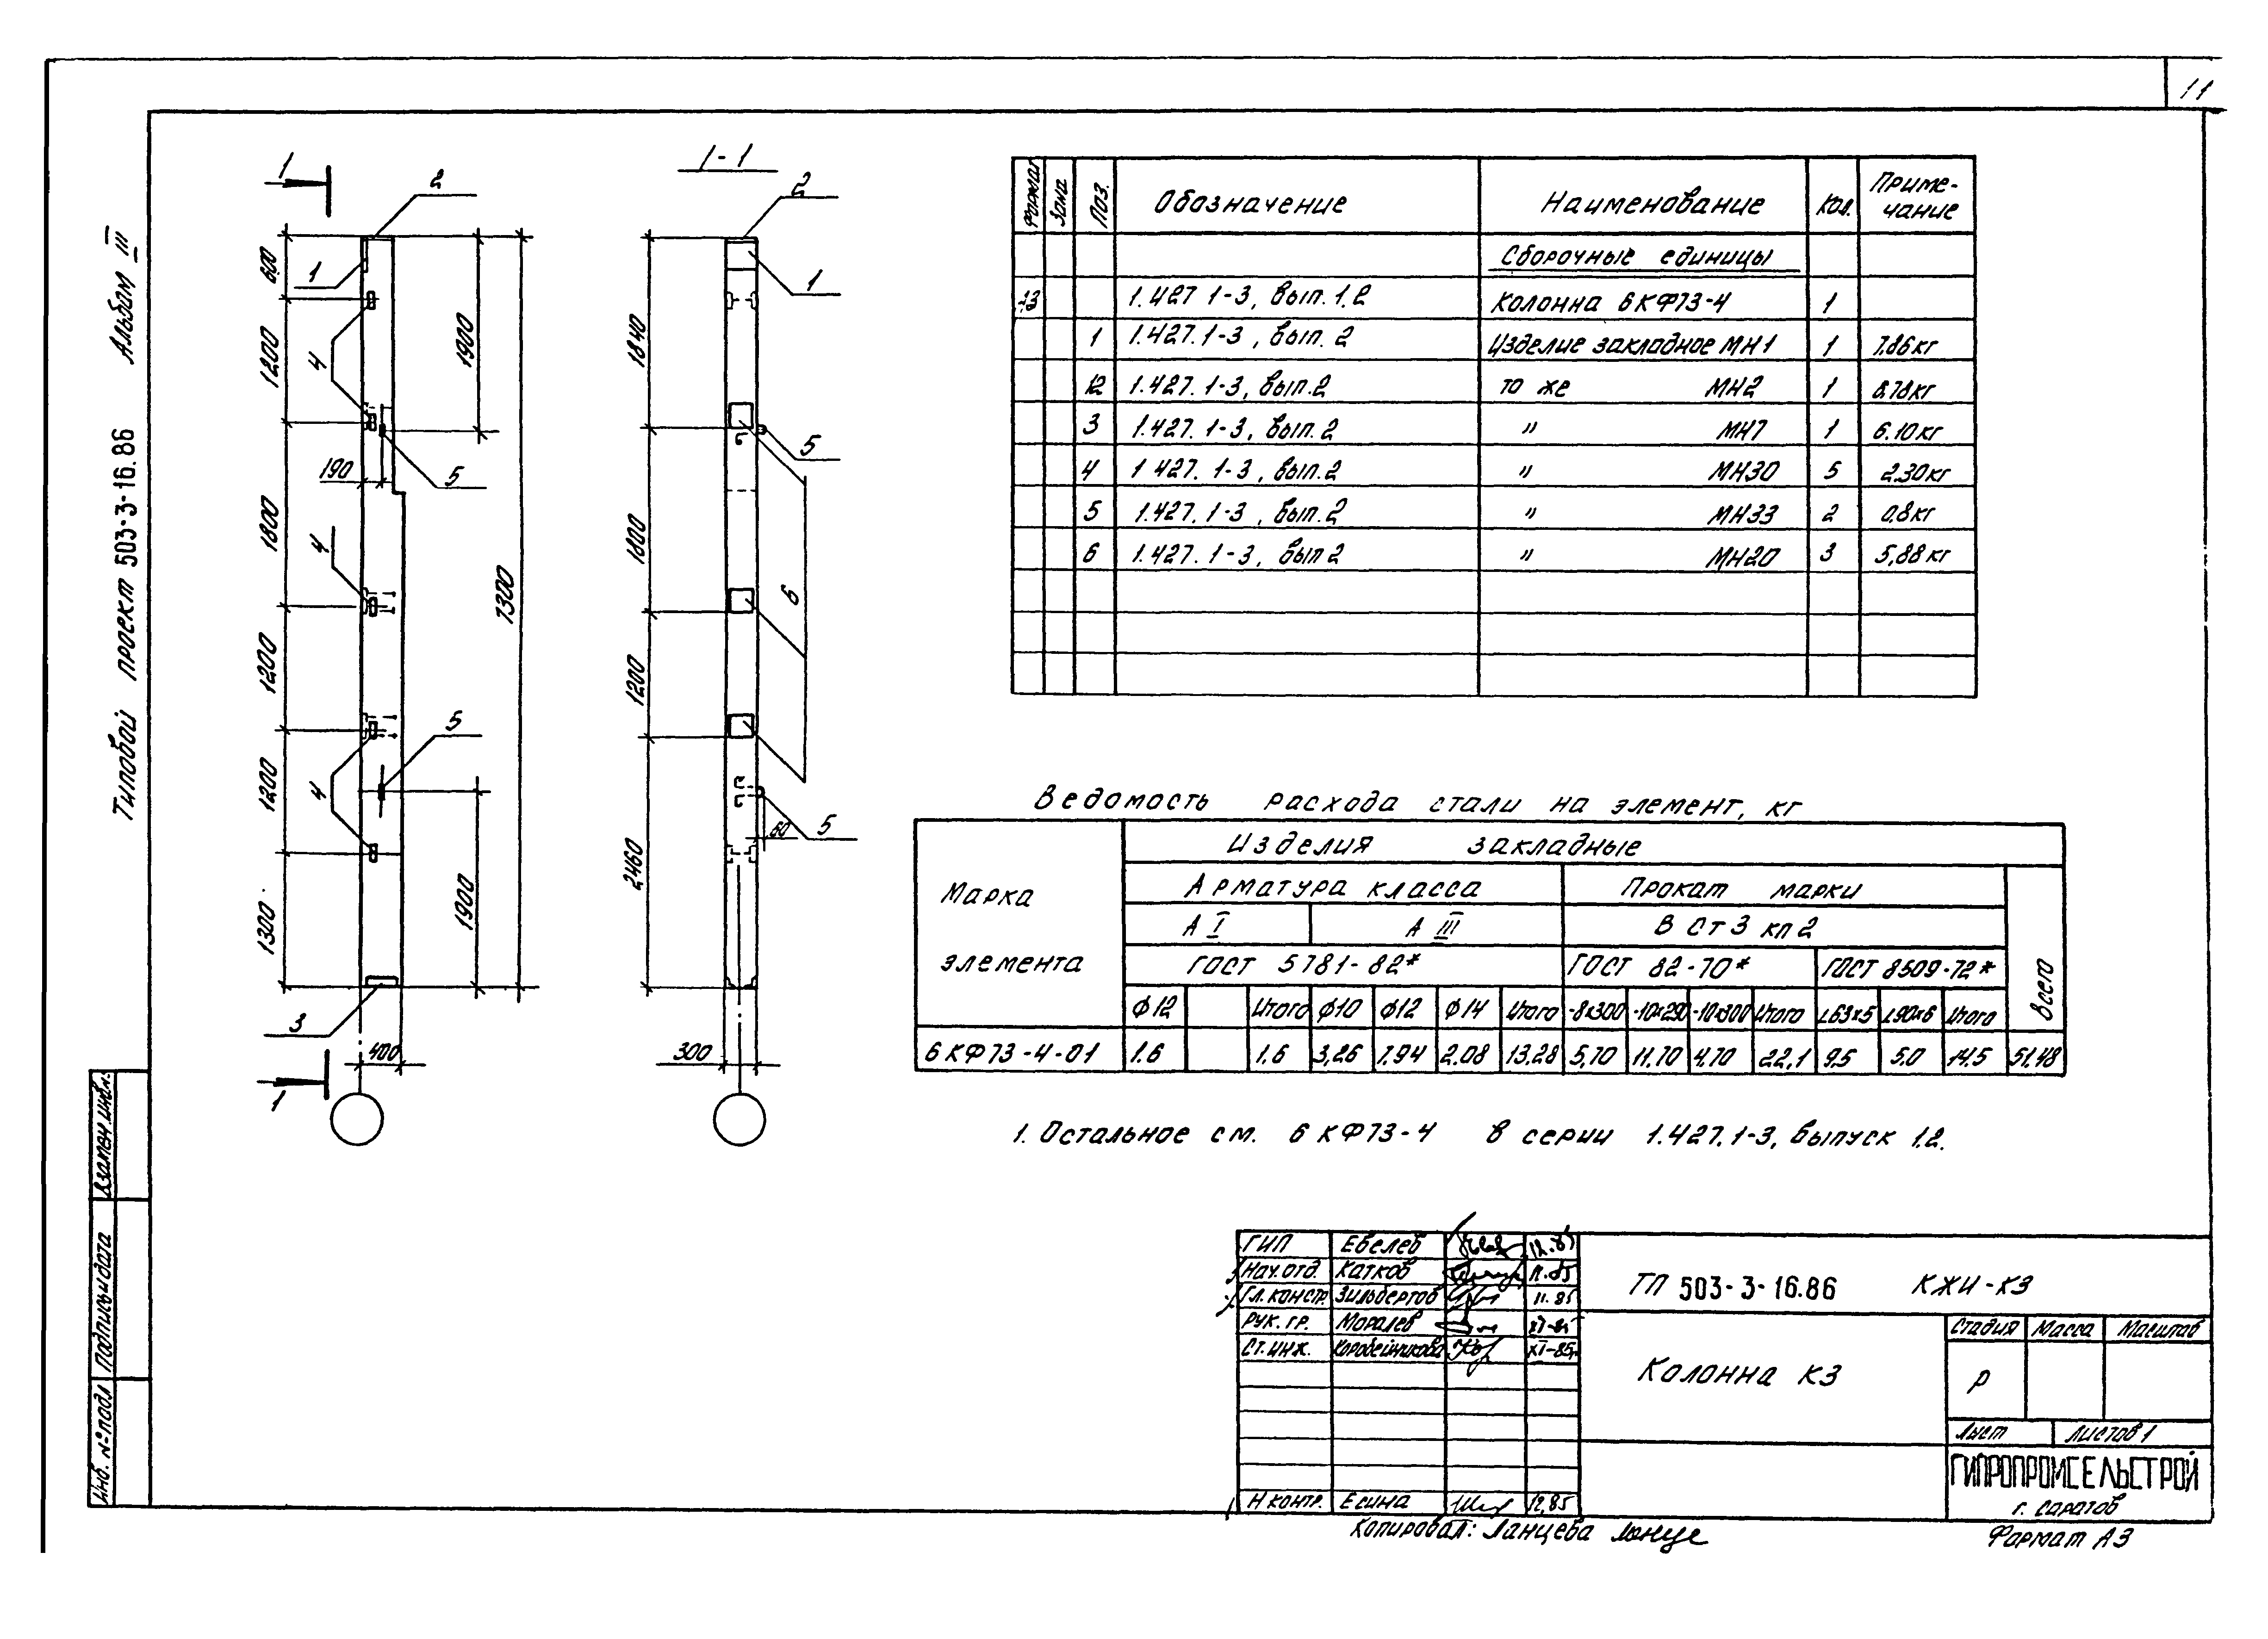 11
Типовой проект 503-3-16.86 Альбом III
1 1-1
2 2
1 1
4 4 4
5 5 5 5
6
3
1
600 1200 1800 1200 1200 1300
1900 190 7300 1900 400
1840 1800 1200 2460
60 300
Формат Зона Поз. Обозначение Наименование Кол. Приме-
чание
Сборочные единицы
1.427 1-3, вып. 1.2 Колонна 6КФ73-4 1
1 1.427.1-3, вып. 2 Изделие закладное МН1 1 7.86кг
12 1.427.1-3, вып.2 то же МН2 1 8.78кг
3 1.427.1-3, вып.2 " МН7 1 6.10кг
4 1 427.1-3, вып.2 " МН30 5 2.30кг
5 1.427.1-3, вып.2 " МН33 2 0.8кг
6 1.427.1-3, вып 2 " МН20 3 5,88кг
Ведомость расхода стали на элемент, кг
Марка
элемента
Изделия закладные
Арматура класса Прокат марки
А I А III В Ст 3 кп 2
ГОСТ 5781-82* ГОСТ 82-70* ГОСТ 8509-72*
Всего
ф12 Итого ф10 ф12 ф14 Итого -8х300 -10х290 -10х300 Итого L63х5 L90х6 Итого
6КФ73-4-01 1.6 1.6 3,26 7.94 2.08 13.28 5,70 11.70 4.70 22,1 9.5 5.0 14.5 51.48
1. Остальное см. 6КФ73-4 в серии 1.427.1-3, выпуск 1.2.
ГИП Евелев 12.85
Нач.отд. Катков 11.85
Гл.констр. Зильбертов 11.85
Рук. гр. Моралев XI-85
Ст.инж. Коробейникова XI-85г
Н контр. Есина 12,85
ТП 503-3-16.86 КЖИ-К3
Колонна К3
Стадия Масса Масштаб
Р
Лист Листов 1
ГИПРОПРОМСЕЛЬСТРОЙ
г. Саратов
Копировал: Ланцева
Формат А3
Инв. № подл Подпись и дата Взамен.инв.